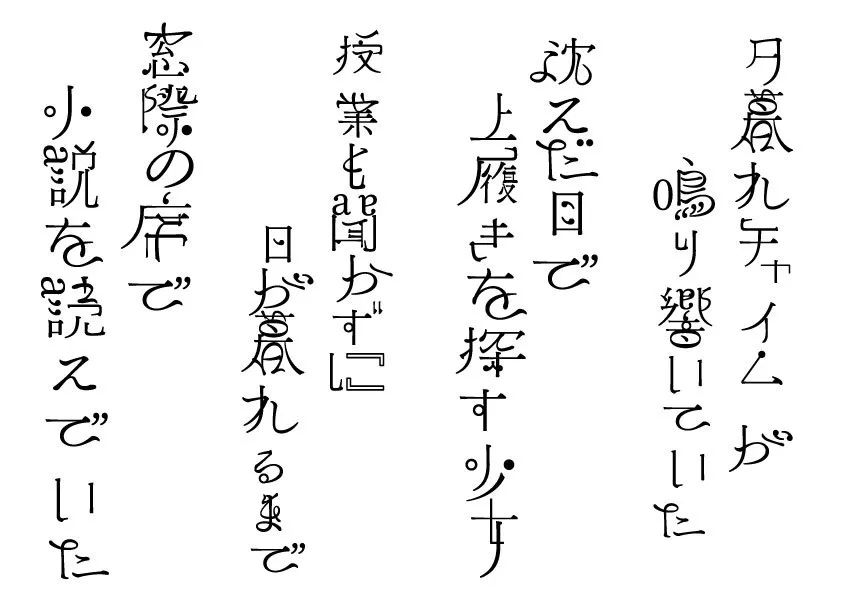 夕暮れチャイムが
鳴り響いていた
沈んだ目で
上履きを探す少女
授業も聞かずに
日が暮れるまで
窓際の席で
小説を読んでいた